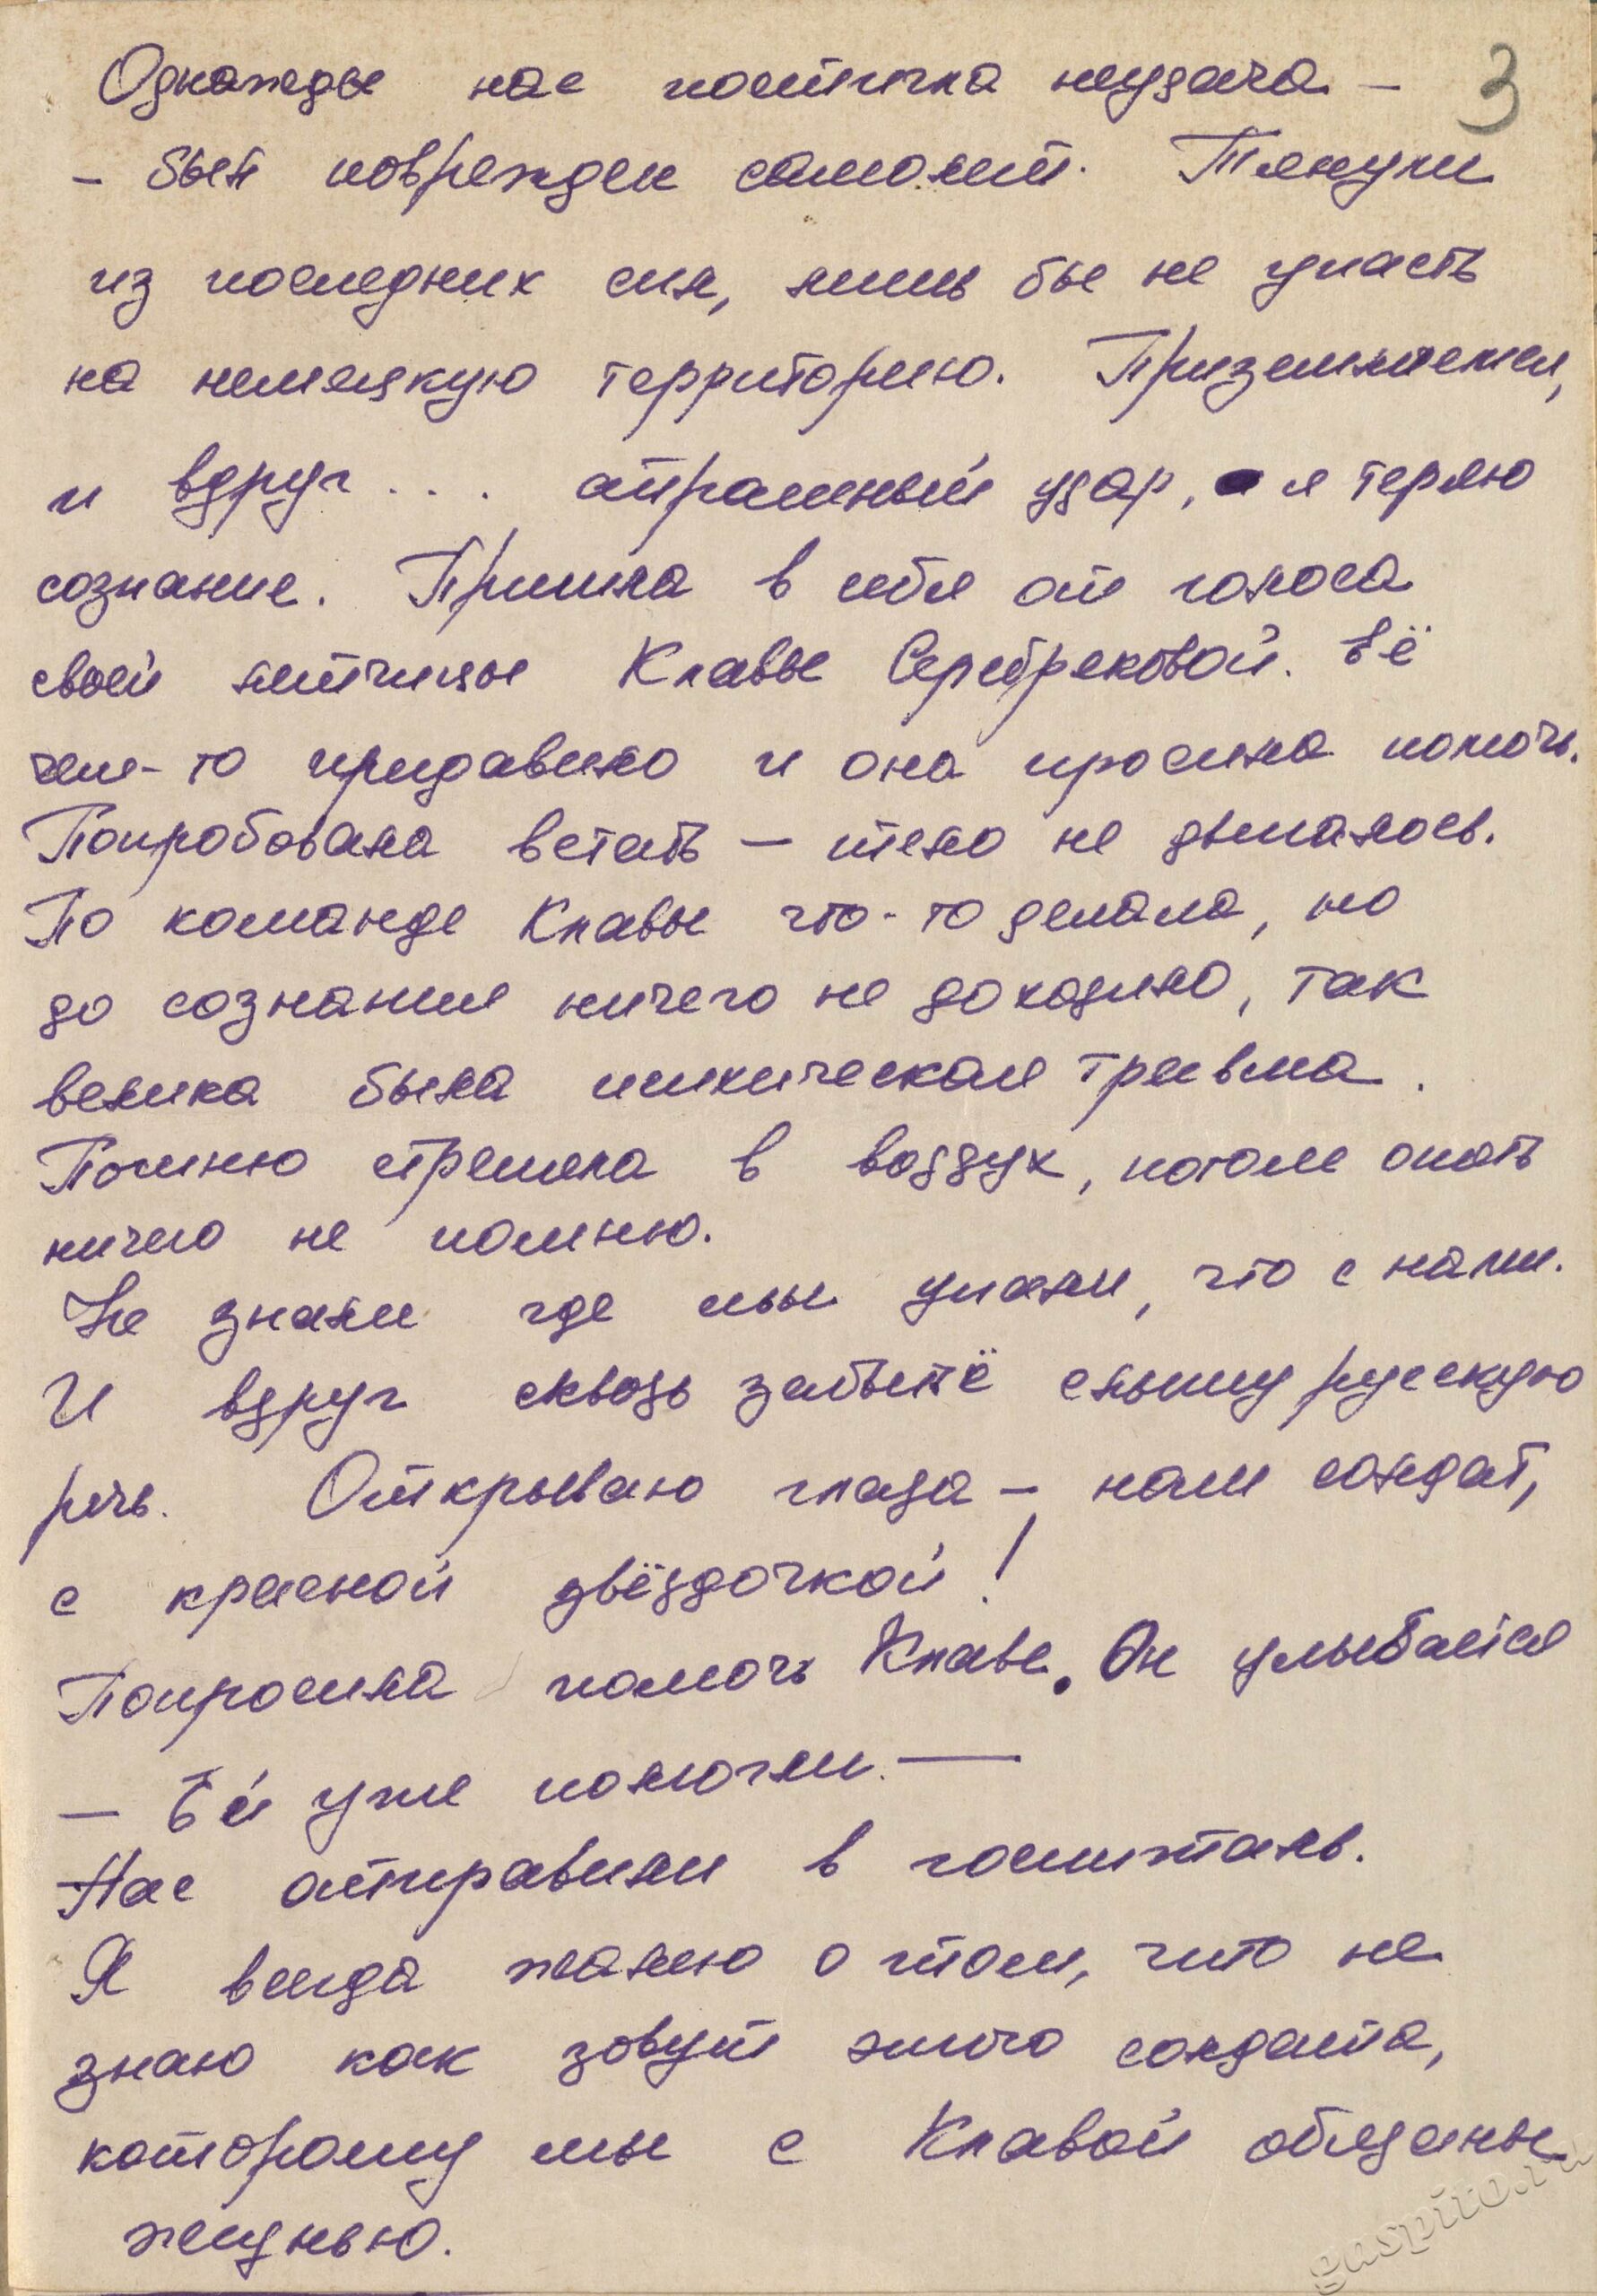 Однажды нас постигла неудача –
3
– был поврежден самолет. Тянули
из последних сил, лишь бы не упасть
на немецкую территорию. Приземляемся,
и вдруг ... страшный удар, я теряю
сознание. Пришла в себя от голоса
своей летчицы Клавы Серебряковой. Её
чем-то придавило и она просила помочь.
Попробовала встать – тело не двигалось.
По команде Клавы что-то делала, но
до сознания ничего не доходило, так
велика была психическая травма.
Помню стреляла в воздух, потом опять
ничего не помню.
Не знали где мы упали, что с нами.
И вдруг сквозь забытьё слышу русскую
речь. Открываю глаза – наш солдат,
с красной звёздочкой!
Попросила помочь Клаве. Он улыбается
– Ей уже помогли. —
Нас отправили в госпиталь.
Я всегда жалею о том, что не
знаю как зовут этого солдата,
которому мы с Клавой обязаны
жизнью.
gaspito.ru